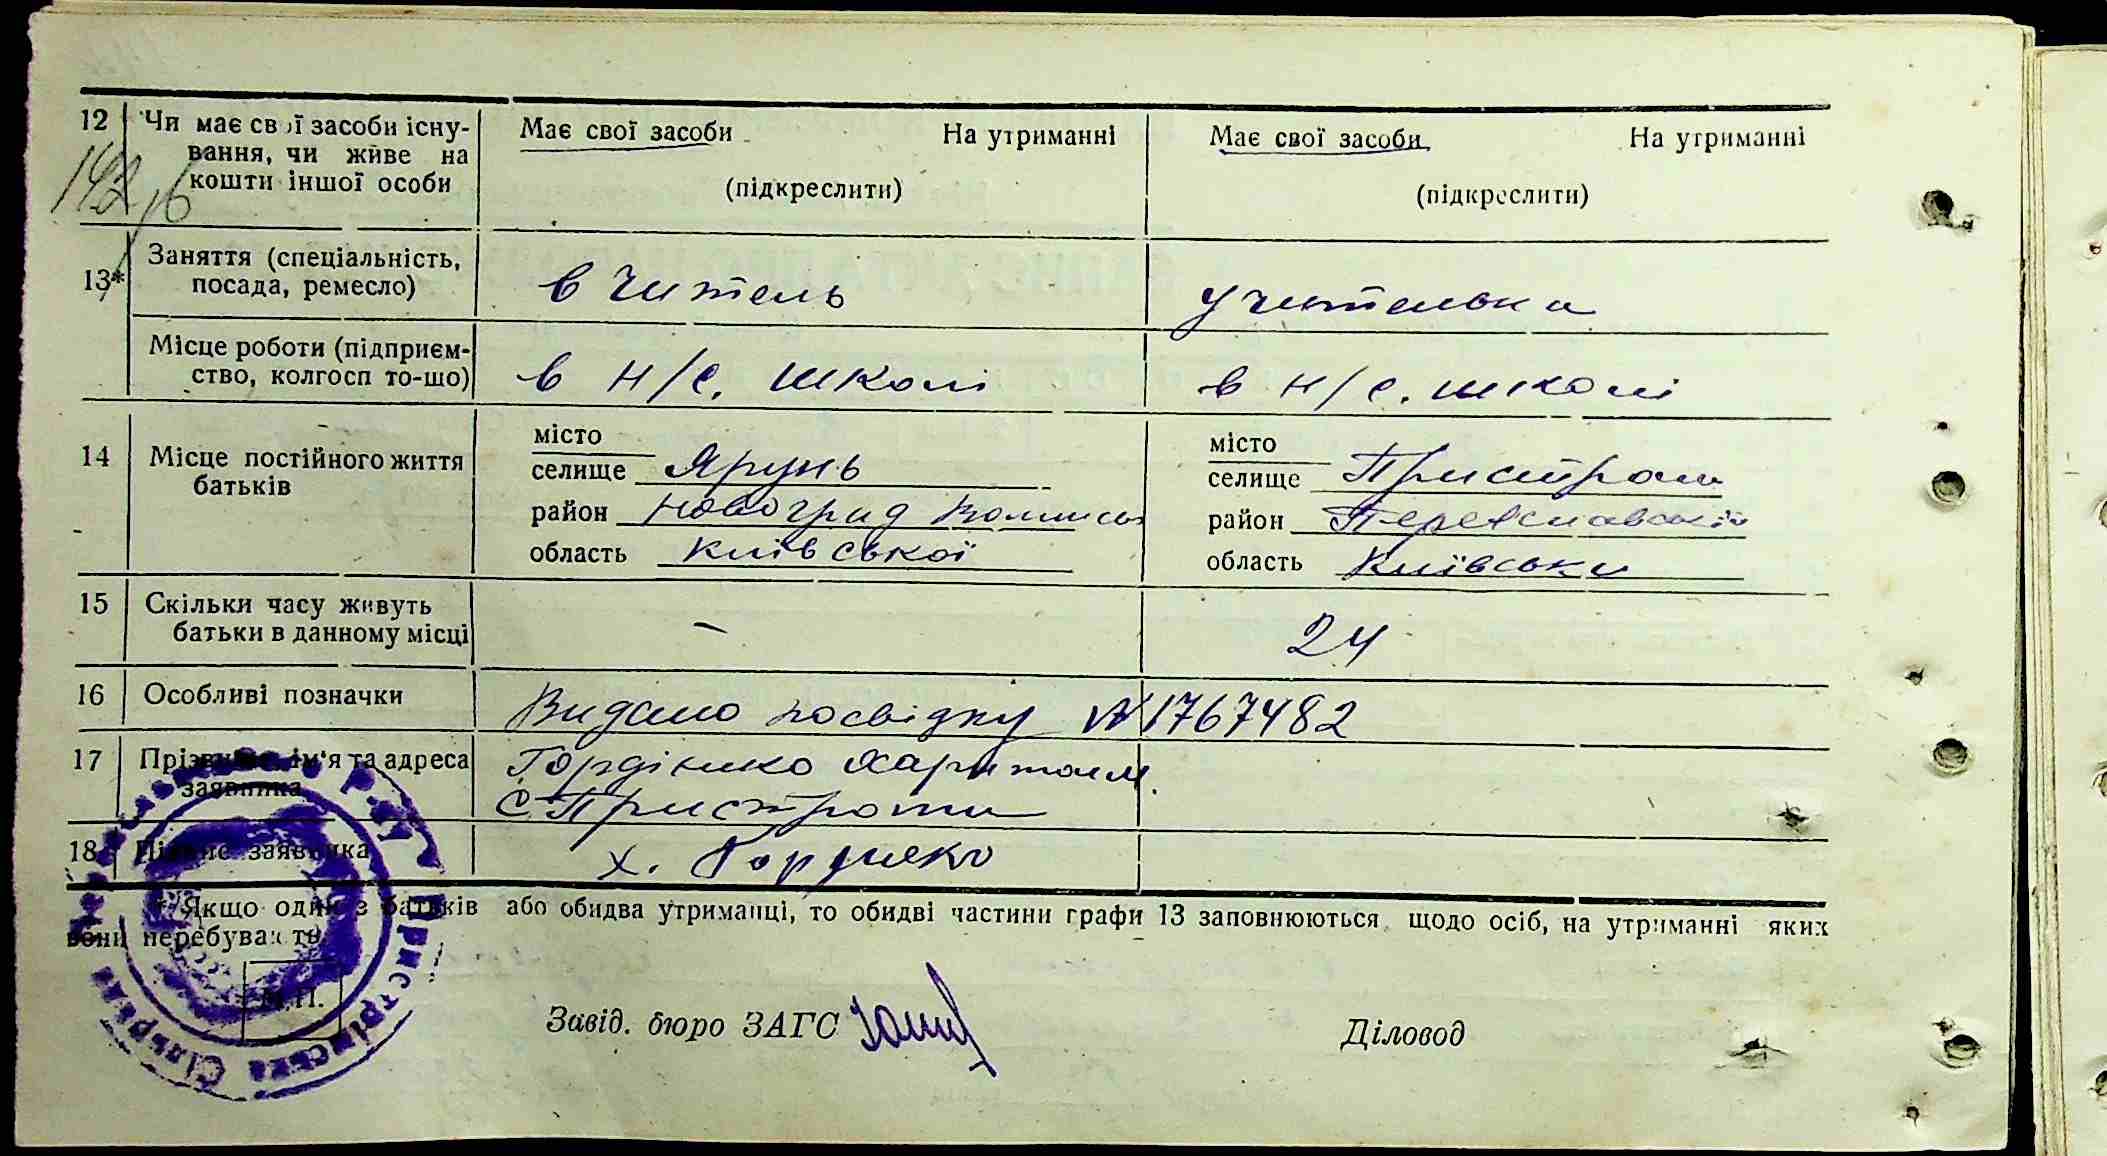 12 Чи має свої засоби існу- Має свої засоби На утриманні Має свої засоби На утриманні
вання, чи живе на
кошти іншої особи (підкреслити) (підкреслити)
142/16
13* Заняття (спеціальність, вчитель учителька
посада, ремесло)
Місце роботи (підприєм- в н/с. школі в н/с. школі
ство, колгосп то-що)
14 Місце постійного життя батьків
місто місто
селище Ярунь селище Пристроми
район Новоград Волинськ район Переяславський
область київської область Київська
15 Скільки часу живуть - 24
батьки в данному місці
16 Особливі позначки Видано посвідку № 1767482
17 Прізвище, ім'я та адреса Гордієнко Харитон
заявника с. Пристроми
18 Підпис заявника х. Гордиеко
* Якщо один з батьків або обидва утриманці, то обидві частини графи 13 заповнюються щодо осіб, на утриманні яких
вони перебувають.
М.П.
Завід. бюро ЗАГС Діловод
Пристрімська Сільрада